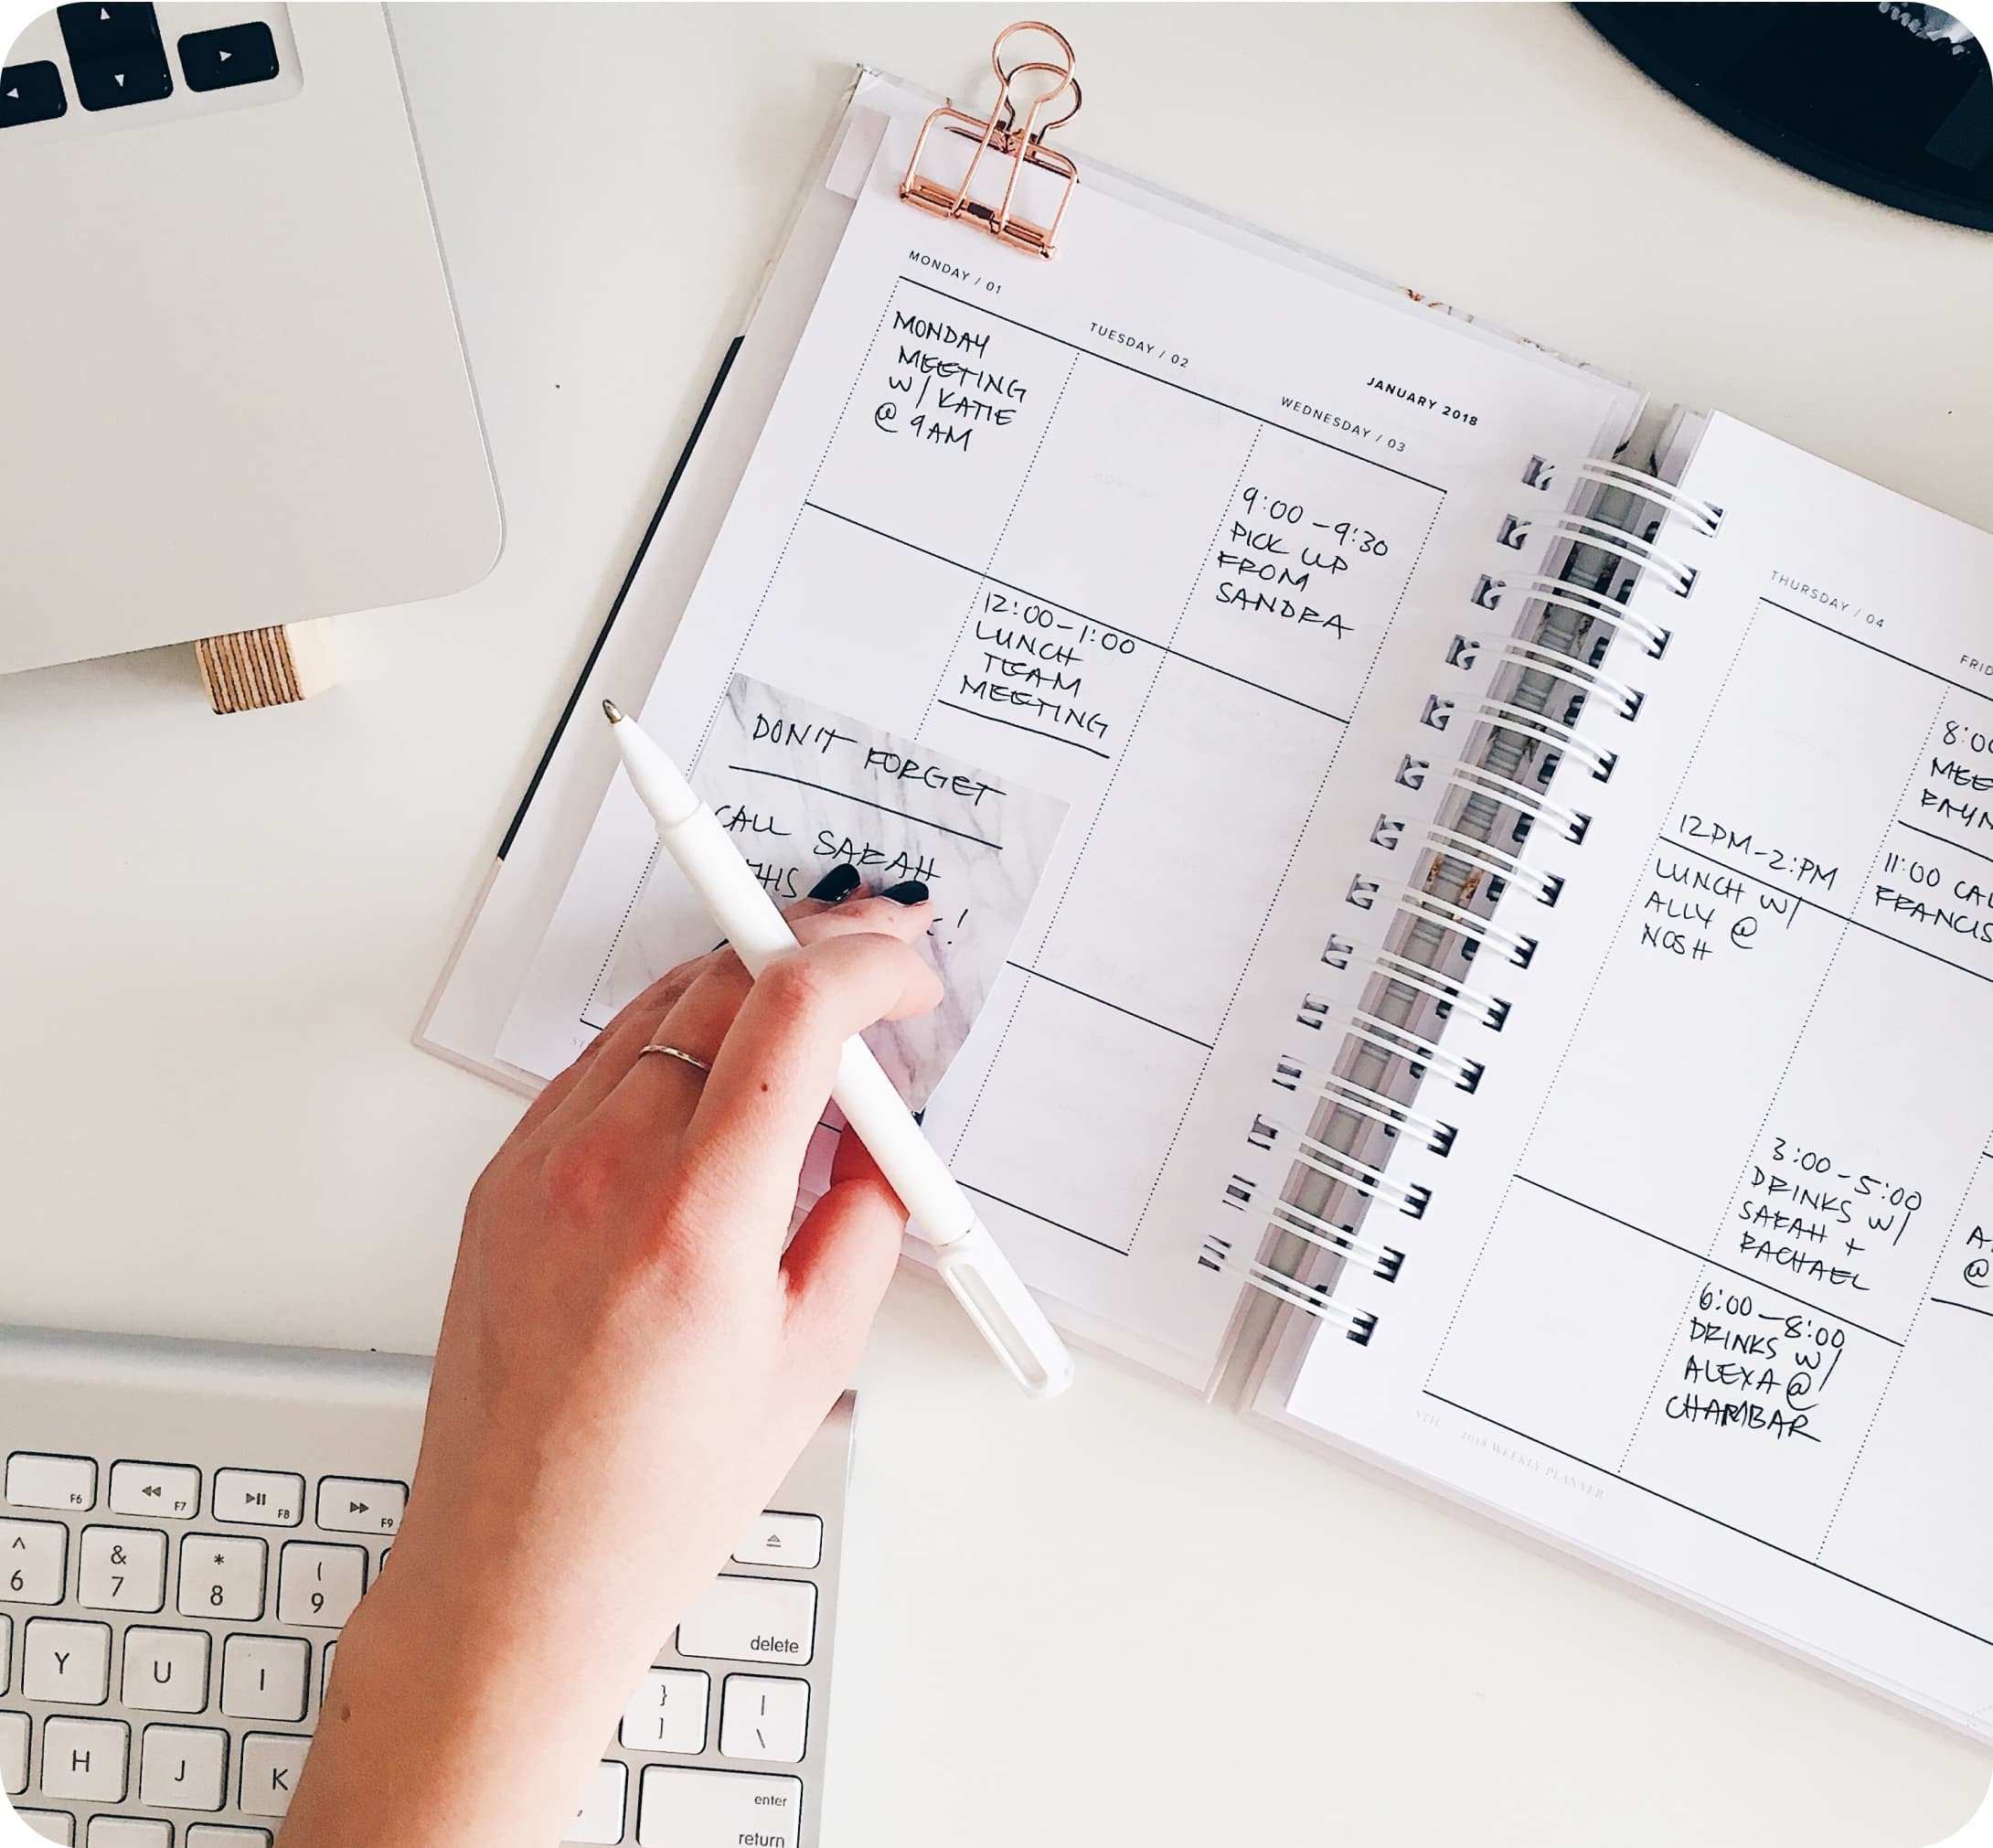 MONDAY / 01
MONDAY
MEETING
W/ KATIE
@ 9AM
TUESDAY / 02
12:00-1:00
LUNCH
TEAM
MEETING
JANUARY 2018
WEDNESDAY / 03
9:00-9:30
PICK UP
FROM
SANDRA
DON'T FORGET
CALL SARAH
THURSDAY / 04
12PM-2:PM
LUNCH W/
ALLY @
NOSH
FRID
8:00
MEE
RAYM
11:00 CAL
FRANCIS
3:00-5:00
DRINKS W/
SARAH +
RACHAEL
6:00-8:00
DRINKS W/
ALEXA @
CHAMBAR
A
@
2018 WEEKLY PLANNER
F6
F7
F8
F9
^
6
&
7
*
8
(
9
delete
Y
U
I
}
]
|
\
H
J
K
enter
return